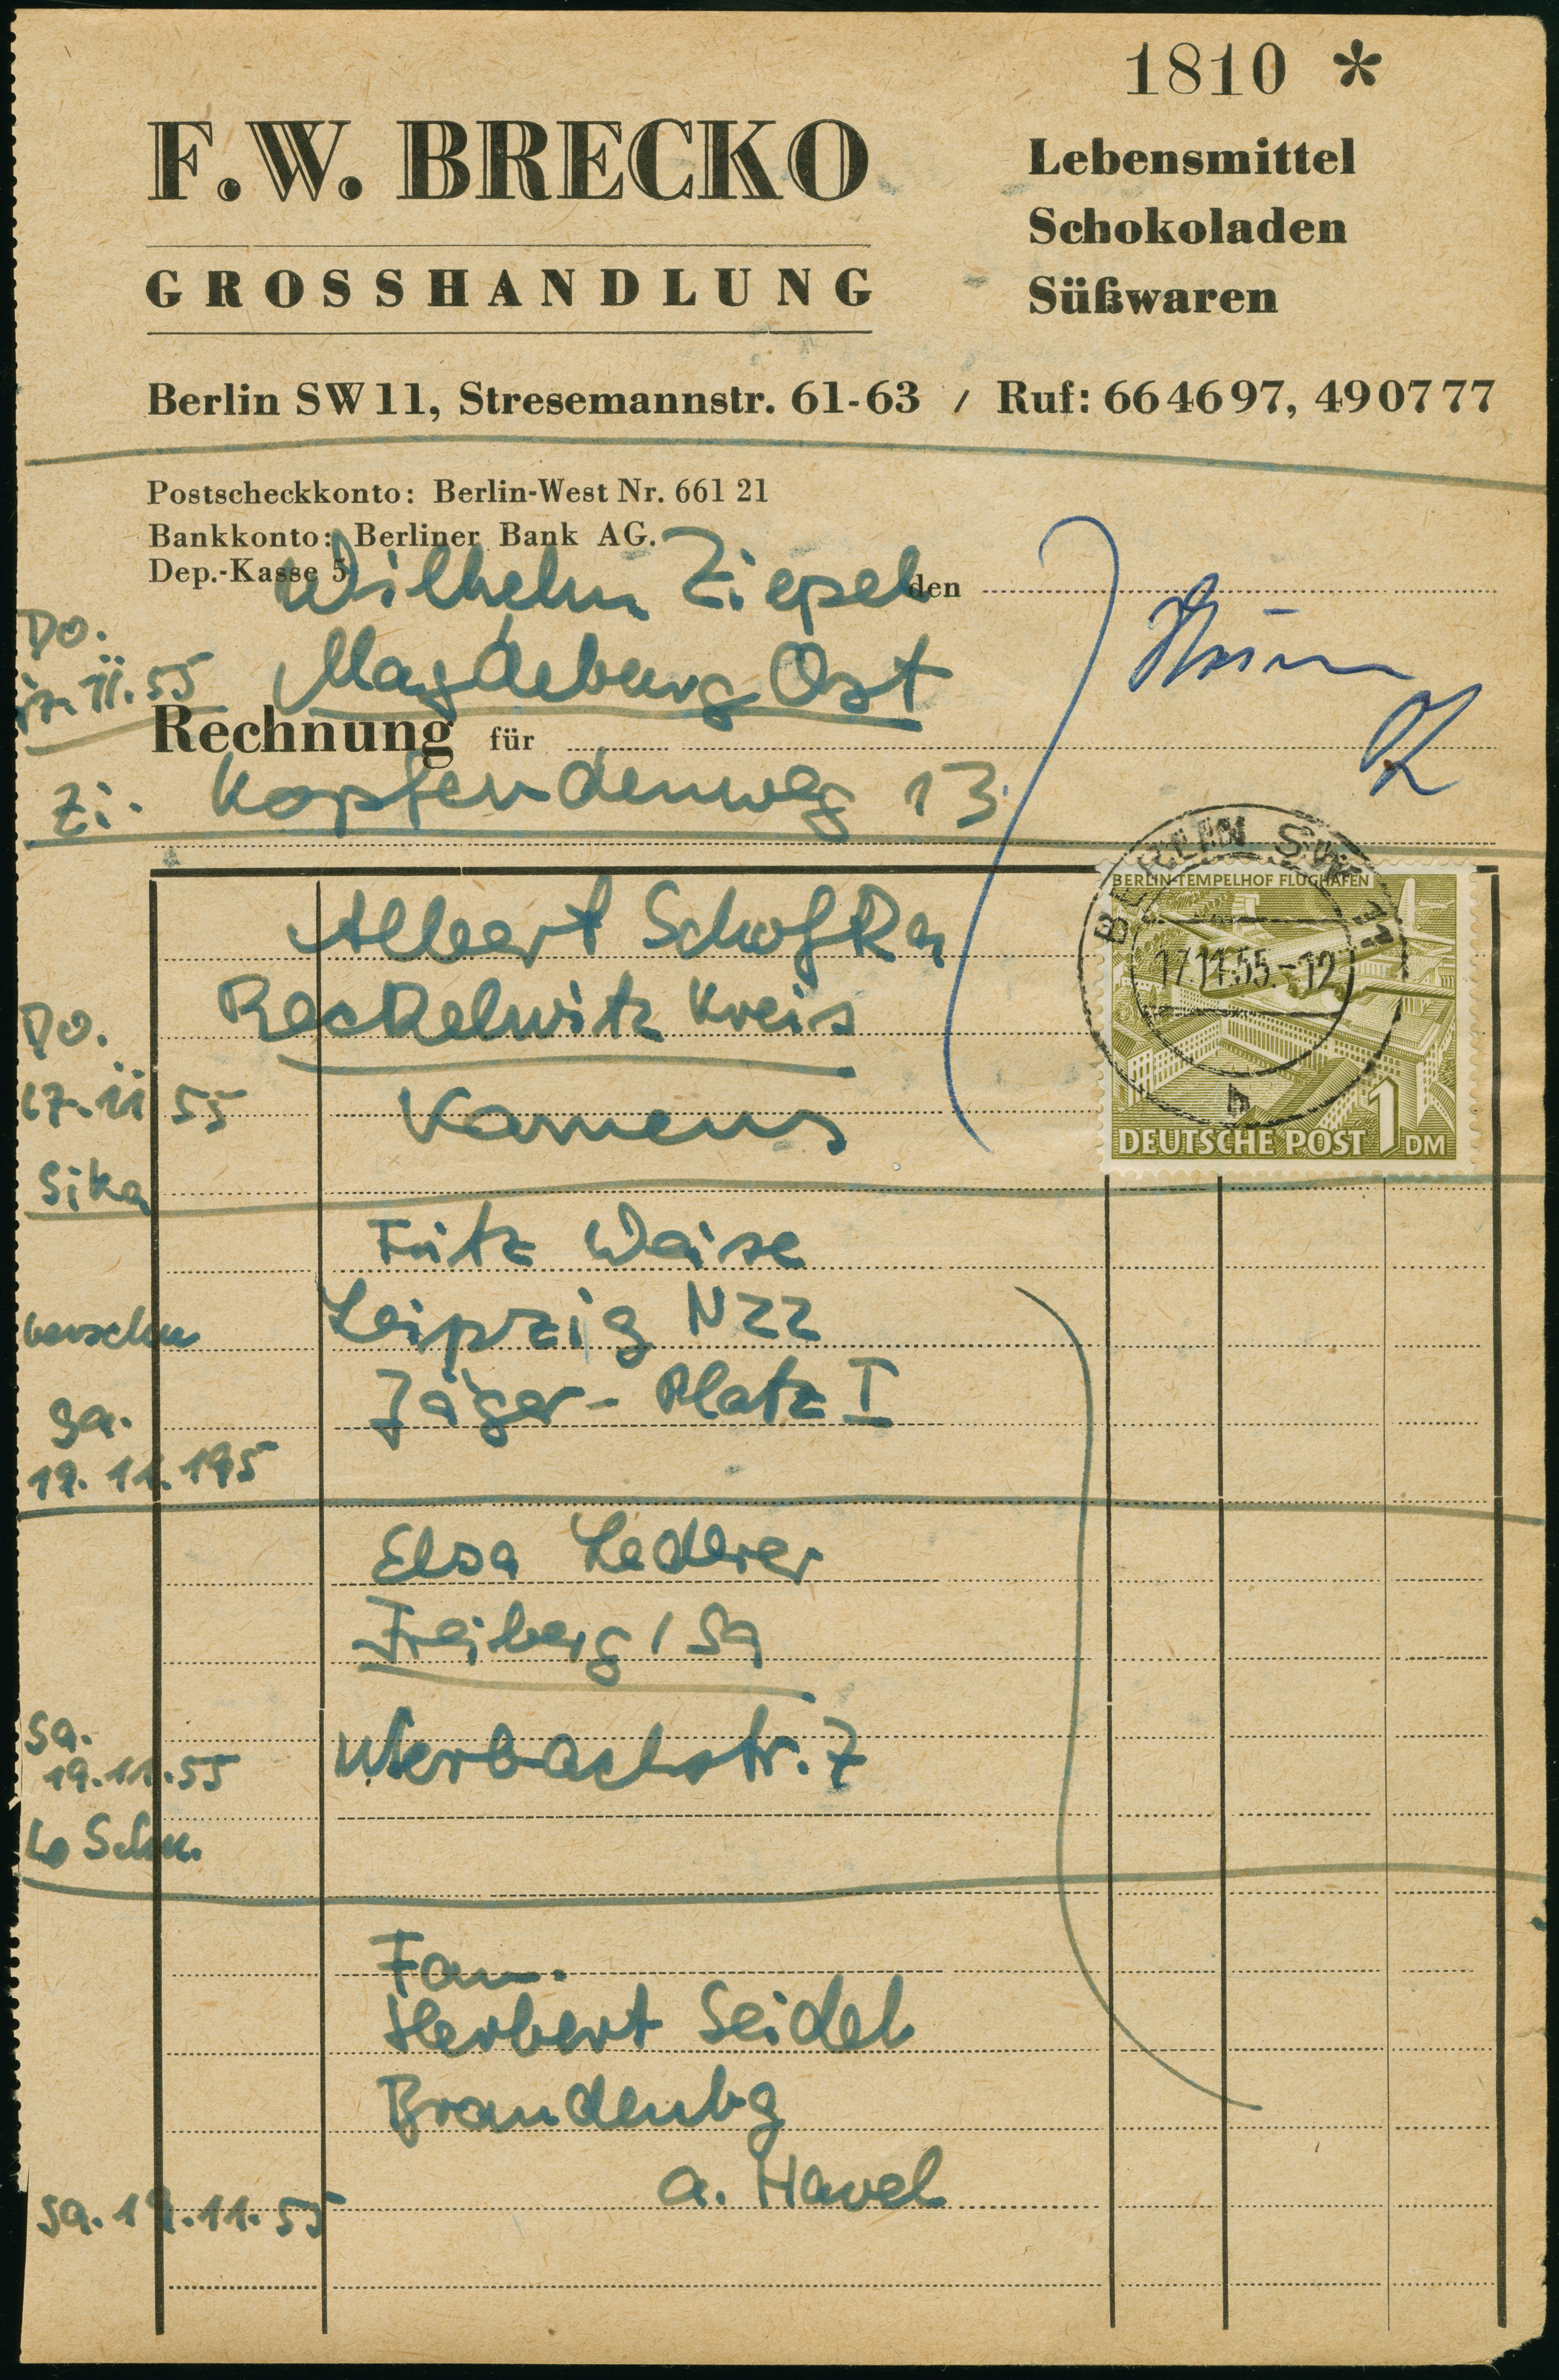 1810 *
F.W. BRECKO
GROSSHANDLUNG
Lebensmittel
Schokoladen
Süßwaren
Berlin SW 11, Stresemannstr. 61-63 / Ruf: 66 46 97, 49 07 77
Postscheckkonto: Berlin-West Nr. 661 21
Bankkonto: Berliner Bank AG.
Dep.-Kasse 5
Wilhelm Ziepel
den
Do.
17.11.55
Magdeburg Ost
Rechnung für
Zi. 13
Albert Schofka
BERLIN SW 11
17.11.55.-12
h
BERLIN-TEMPELHOF FLUGHAFEN
DEUTSCHE POST 1 DM
Reckelwitz Kreis
Do.
17.11 55
Kamens
Sika
Fritz Weise
Leipzig N22
Jäger-Platz I
Sa.
19.11.195
Elsa Lederer
Freiberg / Sa
Sa.
19.11.55
str. 7
Lo Schu.
Fam.
Herbert Seidel
Brandenbg
a. Havel
Sa. 19.11.55